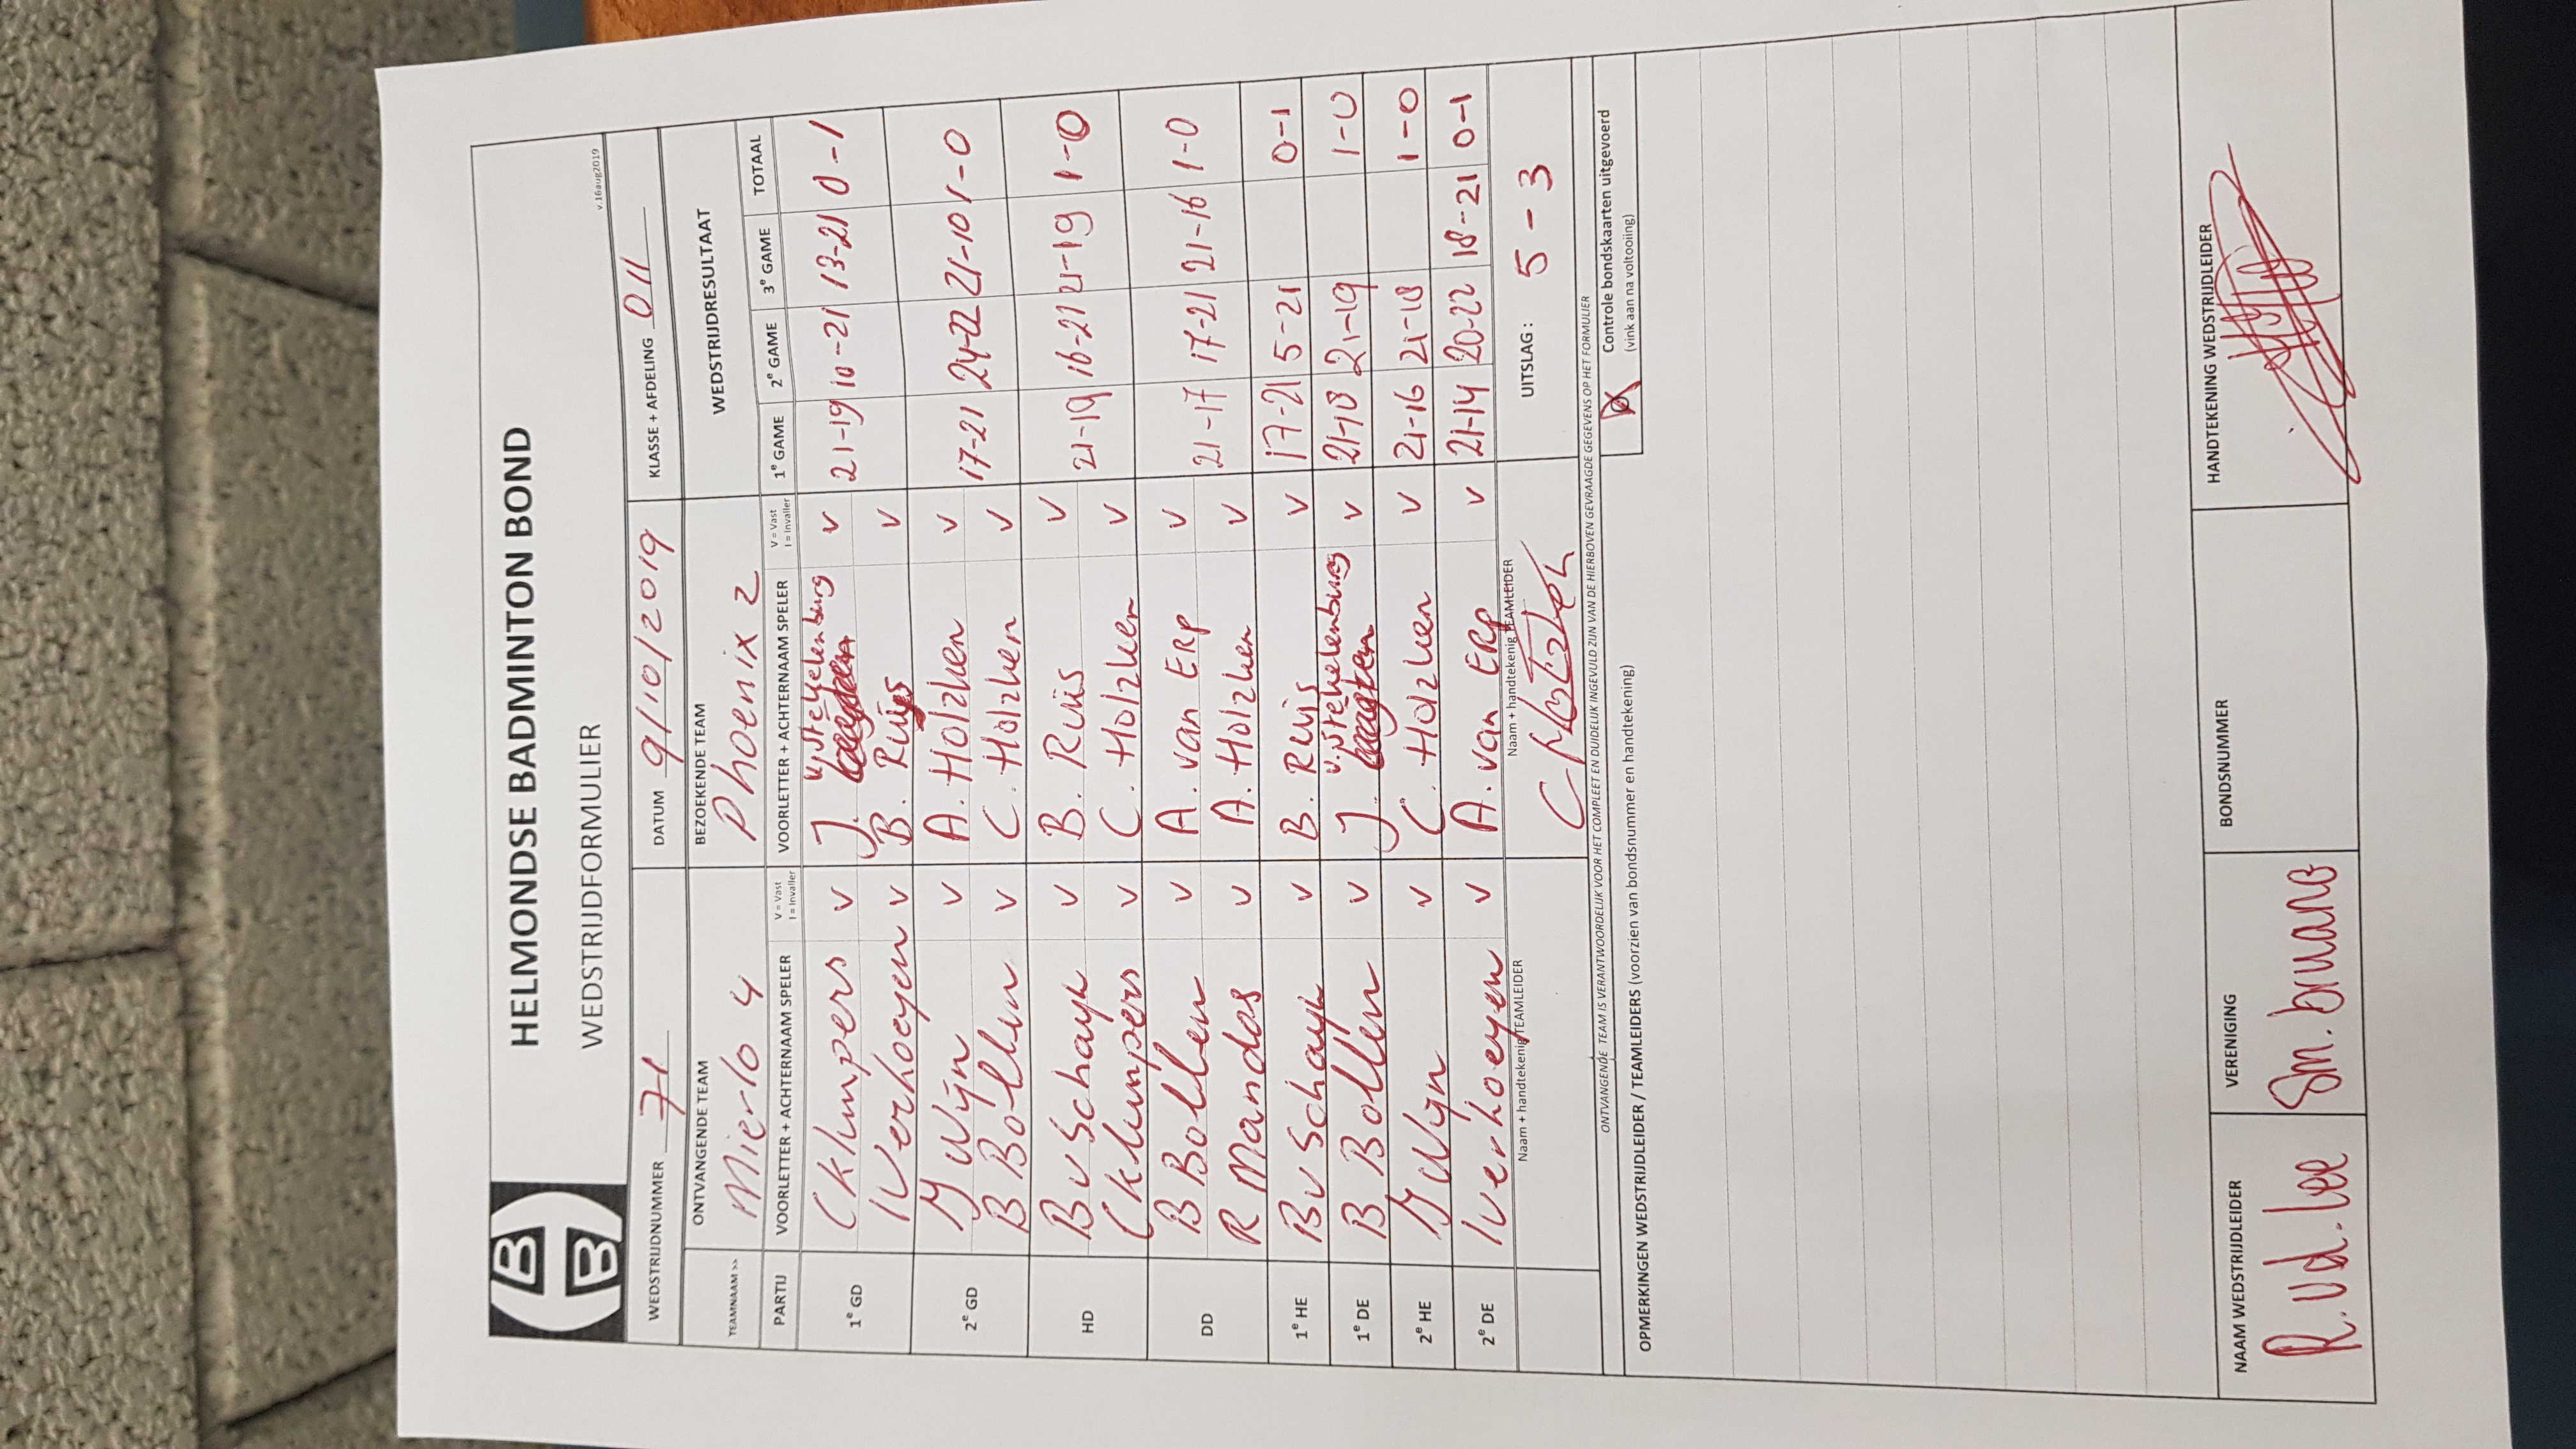 HELMONDSE BADMINTON BOND
WEDSTRIJDFORMULIER
v.16aug2019
WEDSTRIJDNUMMER 71 DATUM 9/10/2019 KLASSE + AFDELING 011
TEAMNAAM >> ONTVANGENDE TEAM BEZOEKENDE TEAM WEDSTRIJDRESULTAAT
Mierlo 4 Phoenix 2
PARTIJ VOORLETTER + ACHTERNAAM SPELER V = Vast I = Invaller VOORLETTER + ACHTERNAAM SPELER V = Vast I = Invaller 1e GAME 2e GAME 3e GAME TOTAAL
1e GD C Klumpers V J. v. Stekelenburg V 21-19 10-21 13-21 0-1
I Verhoeyen V B. Ruijs V
2e GD Wijn V A. Holzken V 17-21 24-22 21-10 1-0
B Bollen V C. Holzken V
HD B v Schayk V B. Ruijs V 21-19 16-21 21-19 1-0
C Klumpers V C. Holzken V
DD B Bollen V A. van Erp V 21-17 17-21 21-16 1-0
R Mandos V A. Holzken V
1e HE B v Schayk V B. Ruijs V 17-21 5-21 0-1
1e DE B Bollen V J. v. Stekelenburg V 21-18 21-19 1-0
2e HE Wijn V C. Holzken V 21-16 21-18 1-0
2e DE I Verhoeyen V A. van Erp V 21-14 20-22 18-21 0-1
Naam + handtekenig TEAMLEIDER Naam + handtekenig TEAMLEIDER UITSLAG : 5 - 3
ONTVANGENDE TEAM IS VERANTWOORDELIJK VOOR HET COMPLEET EN DUIDELIJK INGEVULD ZIJN VAN DE HIERBOVEN GEVRAAGDE GEGEVENS OP HET FORMULIER
Controle bondskaarten uitgevoerd
(vink aan na voltooiing)
OPMERKINGEN WEDSTRIJDLEIDER / TEAMLEIDERS (voorzien van bondsnummer en handtekening)
NAAM WEDSTRIJDLEIDER VERENIGING BONDSNUMMER HANDTEKENING WEDSTRIJDLEIDER
R. vd. Lee